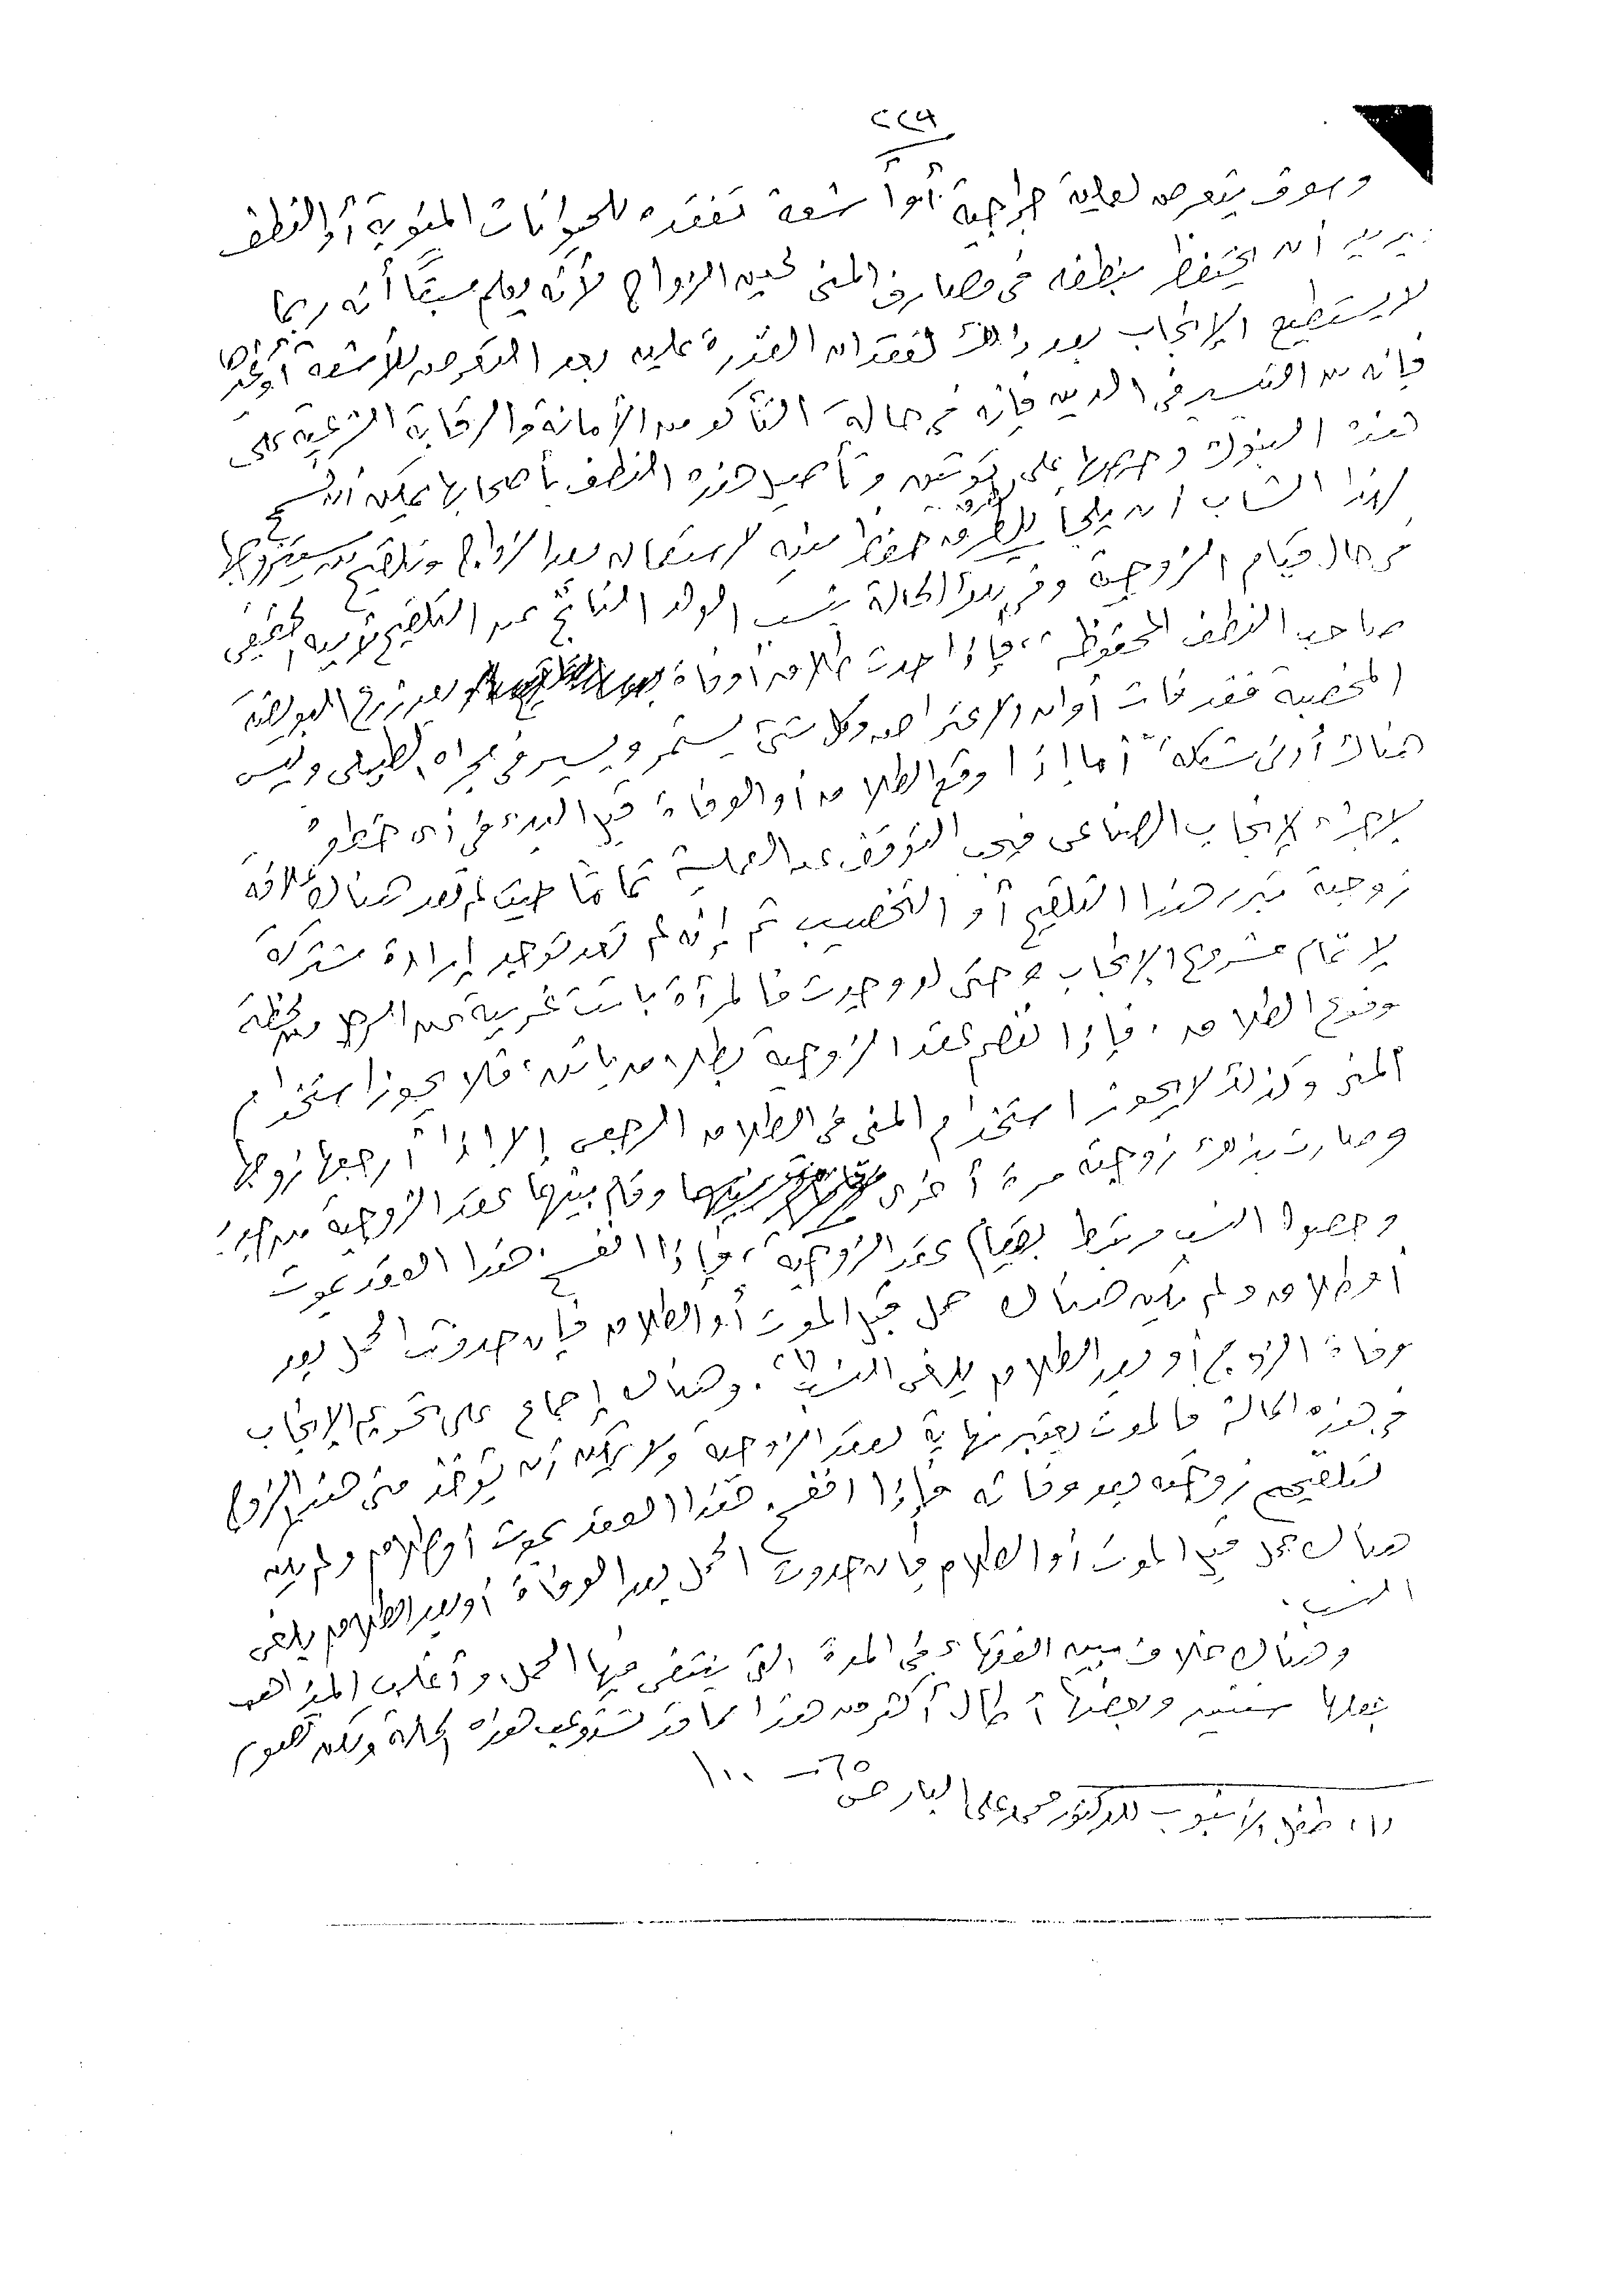 ٢٢٩
وسوف يتعرض لعملية جراحية أو أشعة تفقده للحيوانات المنوية أو النطف
يريد أن يحتفظ بنطفه في مصارف المني لحين الزواج لأنه يعلم مسبقاً أنه ربما
لا يستطيع الإنجاب بعد ذلك لفقدان القدرة عليه بعد التعرض للأشعة أو
فإنه من التيسير في الدين فإنه في حالة التأكد من الأمانة والرقابة الشرعية على
هذه البنوك وحرصها على توثيق وتأصيل هذه النطف بأصحابها يمكن أن نسمح
لهذا الشاب أن يلجأ لطرق حفظ منيه لاستعماله بعد الزواج وتلقيح من سيتزوجها
في حال قيام الزوجية وفي هذه الحالة ينسب الولد الناتج عن التلقيح لأبيه الحقيقي
صاحب النطف المحفوظة، فإذا حدث طلاق أو وفاة بعد زرع البويضة
المخصبة فقد فات أوان الاعتراض وكل شيء يستمر ويسير في مجراه الطبيعي وليس
هناك أدنى مشكلة أما إذا وقع الطلاق أو الوفاة قبل البدء في أي خطوة
لإجراء الإنجاب الصناعي فيجب التوقف عن العملية تماماً حيث لم تعد هناك علاقة
زوجية تبرر هذا التلقيح أو التخصيب ثم إنه لم تعد توجد إرادة مشتركة
لإتمام مشروع الإنجاب وحتى لو وجدت فالمرأة باتت غريبة عن الرجل من لحظة
وقوع الطلاق، فإذا انفصم عقد الزوجية بطلاق بائن، فلا يجوز استخدام
المني وكذلك لا يجوز استخدام المني في الطلاق الرجعي إلا إذا أرجعها زوجها
وصارت بذلك زوجية مرة أخرى وقام بينهما عقد الزوجية من جديد
وحصول النسب مرتبط بقيام عقد الزوجية، فإذا انفسخ هذا العقد بموت
أو طلاق ولم يكن هناك حمل قبل الموت أو الطلاق فإن حدوث الحمل بعد
وفاة الزوج أو بعد الطلاق يلغي النسب(١). وهناك إجماع على تحريم الإنجاب
في هذه الحالة فالموت يعتبر نهاية لعقد الزوجية ولا يمكن أن يؤخذ مني هذا الزوج
لتلقيح زوجته بعد وفاته فإذا انفسخ هذا العقد بموت أو طلاق ولم يكن
هناك حمل قبل الموت أو الطلاق فإن حدوث الحمل بعد الوفاة أو بعد الطلاق يلغي
النسب.
وهناك خلاف بين الفقهاء في المدة التي ينتفي فيها الحمل وأغلب المذاهب
يجعلها سنتين وبعضها أطال أكثر من هذا مما قد تستوعب هذه الحالة ولكن
(١) طفل الأنبوب للدكتور محمد علي البار ص ٦٥ — ١٠٠